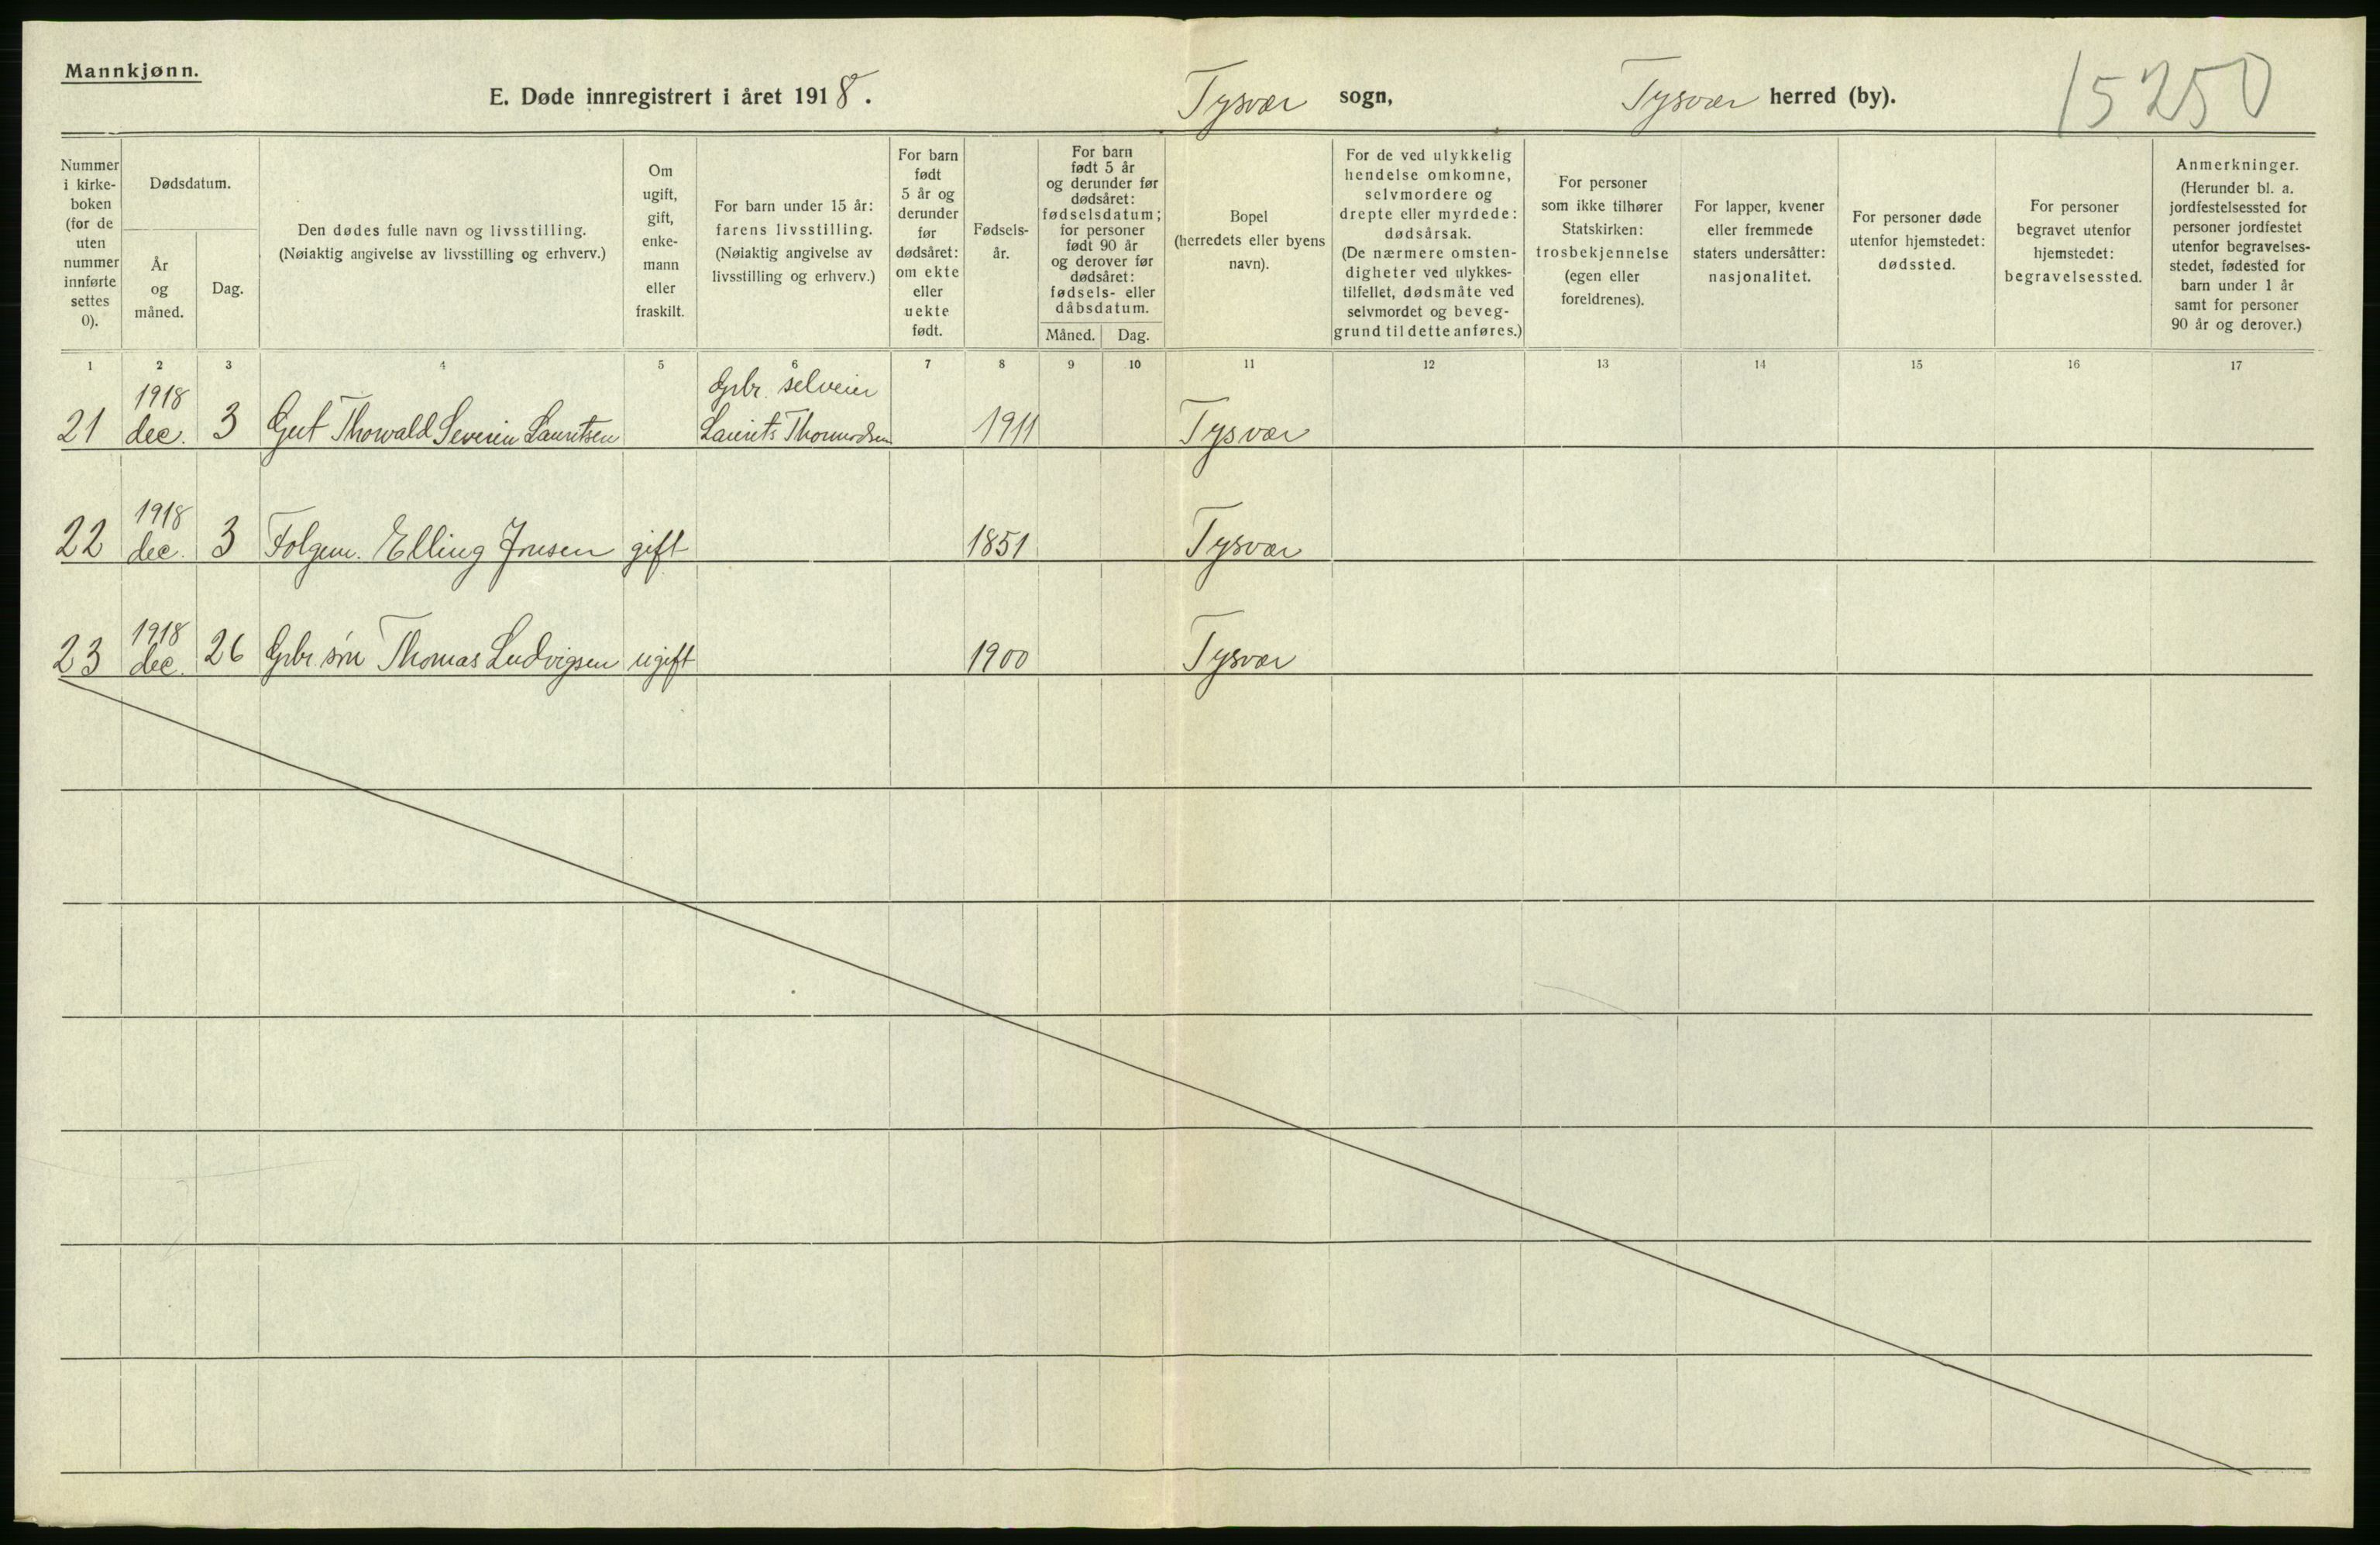 Mannkjønn.
E. Døde innregistrert i året 1918. Tysvær sogn, Tysvær herred (by). 15250
Nummer
i kirke-
boken
(for de
uten
nummer
innførte
settes
0).
Dødsdatum.
År
og
måned.
Dag.
Den dødes fulle navn og livsstilling.
(Nøiaktig angivelse av livsstilling og erhverv.)
Om
ugift,
gift,
enke-
mann
eller
fraskilt.
For barn under 15 år:
farens livsstilling.
(Nøiaktig angivelse av
livsstilling og erhverv.)
For barn
født
5 år og
derunder
før
dødsåret:
om ekte
eller
uekte
født.
Fødsels-
år.
For barn
født 5 år
og derunder før
dødsåret:
fødselsdatum;
for personer
født 90 år
og derover før
dødsåret:
fødsels- eller
dåbsdatum.
Måned. Dag.
Bopel
(herredets eller byens
navn).
For de ved ulykkelig
hendelse omkomne,
selvmordere og
drepte eller myrdede:
dødsårsak.
(De nærmere omsten-
digheter ved ulykkes-
tilfellet, dødsmåte ved
selvmordet og beveg-
grund til dette anføres.)
For personer
som ikke tilhører
Statskirken:
trosbekjennelse
(egen eller
foreldrenes).
For lapper, kvener
eller fremmede
staters undersåtter:
nasjonalitet.
For personer døde
utenfor hjemstedet:
dødssted.
For personer
begravet utenfor
hjemstedet:
begravelsessted.
Anmerkninger.
(Herunder bl. a.
jordfestelsessted for
personer jordfestet
utenfor begravelses-
stedet, fødested for
barn under 1 år
samt for personer
90 år og derover.)
1 2 3 4 5 6 7 8 9 10 11 12 13 14 15 16 17
1918 Gbr. selveier
21 dec. 3 Gut Thorvald Severin Lauritsen Laurits Thormodsen 1911 Tysvær
1918
22 dec. 3 Folgem. Elling Jonsen gift 1851 Tysvær
1918
23 dec. 26 Gbr. søn Thomas Ludvigsen ugift 1900 Tysvær